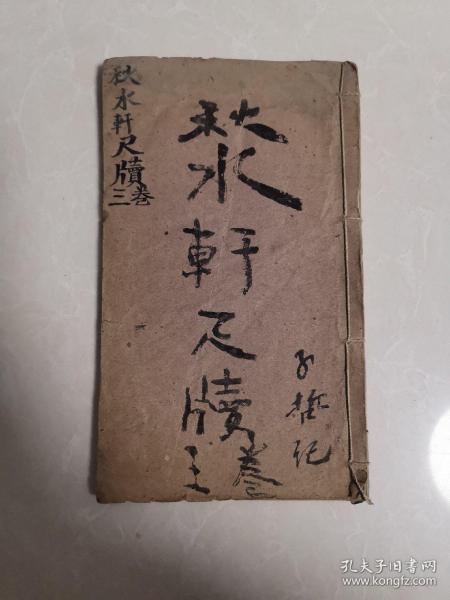 秋水軒尺牘卷三
秋水軒尺牘卷三
子哲記
孔夫子旧书网
www.kongfz.com